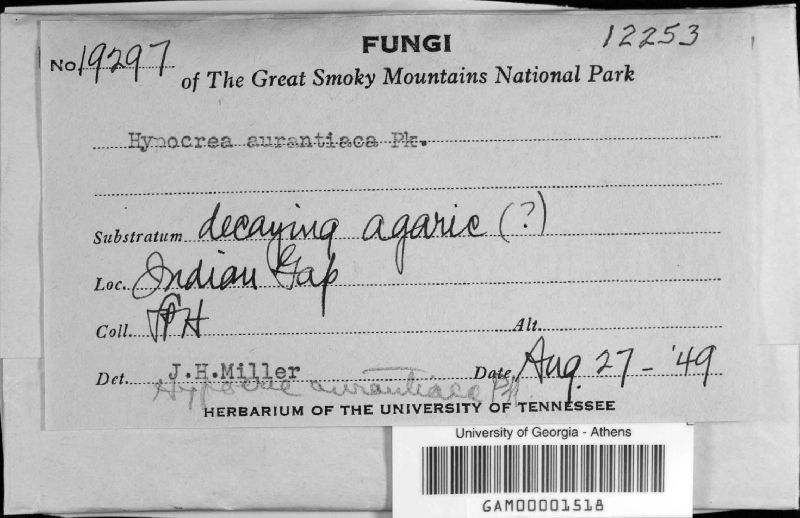 FUNGI 12253
No. 19297
of The Great Smoky Mountains National Park
Hypocrea aurantiaca Pk.
Substratum decaying agaric (?)
Loc. Indian Gap
Coll. H Alt.
Det. J.H.Miller Date Aug. 27 - '49
Hypocrea aurantiaca Pk
HERBARIUM OF THE UNIVERSITY OF TENNESSEE
University of Georgia - Athens
GAM00001518